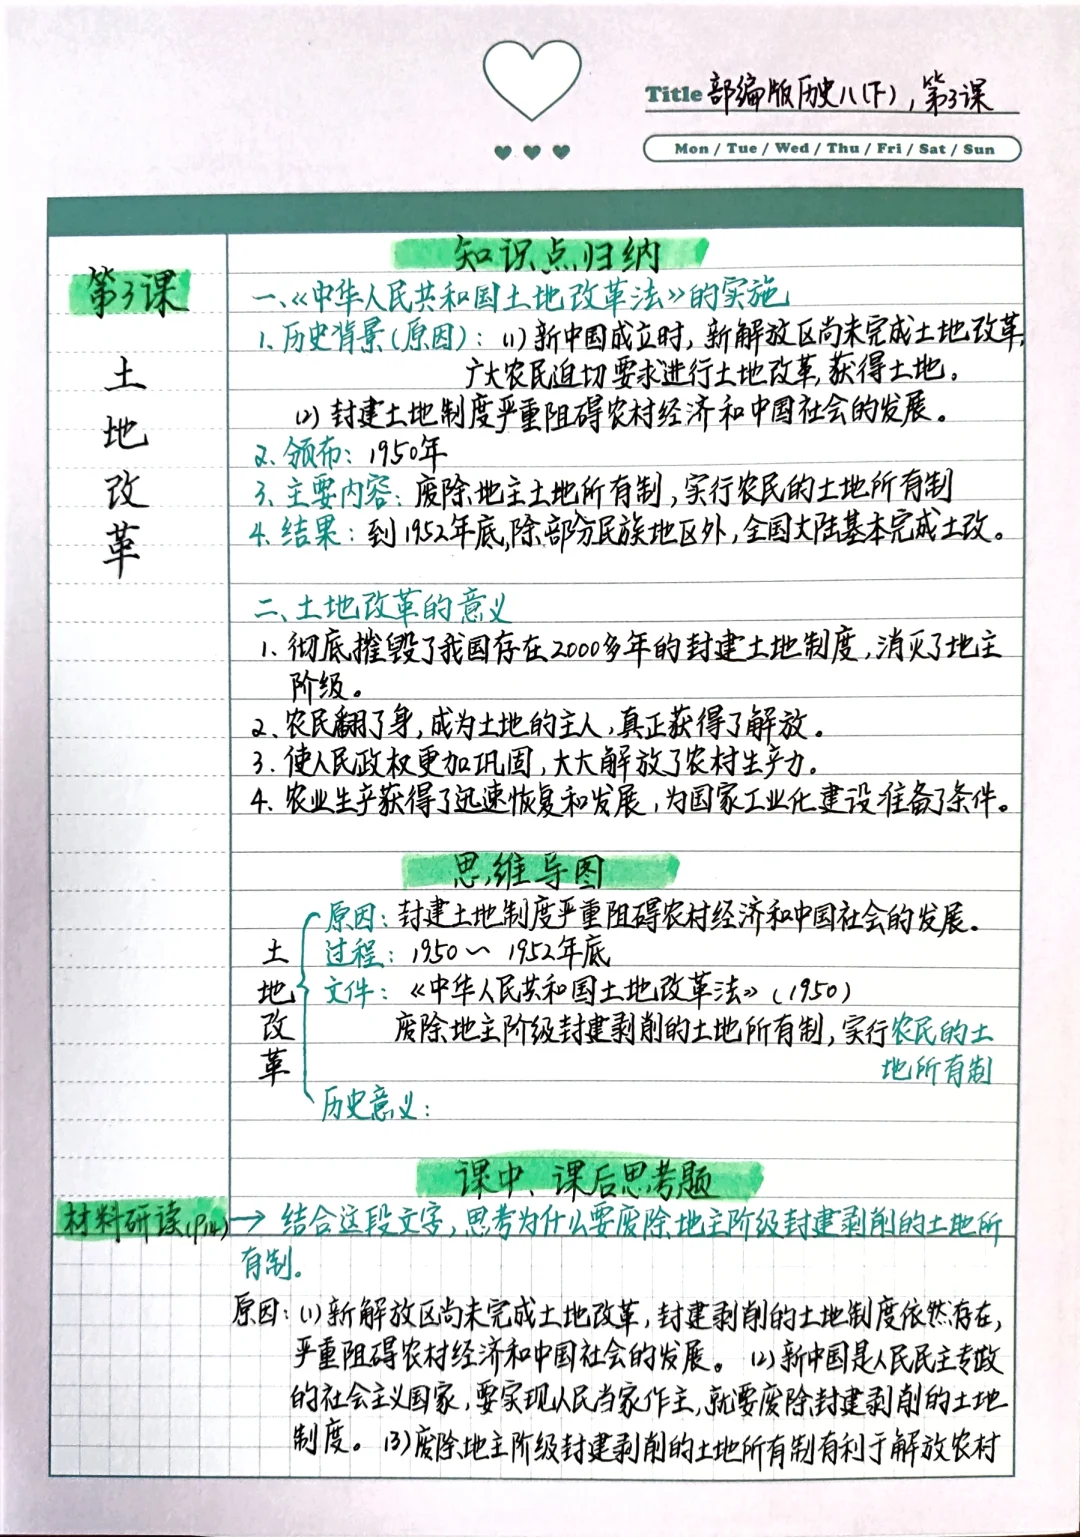 Title 部编版历史八(下),第3课
Mon / Tue / Wed / Thu / Fri / Sat / Sun
第3课
土地改革
知识点归纳
一、《中华人民共和国土地改革法》的实施
1.历史背景(原因):(1)新中国成立时,新解放区尚未完成土地改革,
广大农民迫切要求进行土地改革,获得土地。
(2)封建土地制度严重阻碍农村经济和中国社会的发展。
2.颁布:1950年
3.主要内容:废除地主土地所有制,实行农民的土地所有制
4.结果:到1952年底,除部分民族地区外,全国大陆基本完成土改。
二、土地改革的意义
1.彻底摧毁了我国存在2000多年的封建土地制度,消灭了地主
阶级。
2、农民翻了身,成为土地的主人,真正获得了解放。
3.使人民政权更加巩固,大大解放了农村生产力。
4.农业生产获得了迅速恢复和发展,为国家工业化建设准备了条件。
思维导图
土地改革
原因:封建土地制度严重阻碍农村经济和中国社会的发展。
过程:1950~1952年底
文件:《中华人民共和国土地改革法》(1950)
废除地主阶级封建剥削的土地所有制,实行农民的土
地所有制
历史意义:
课中、课后思考题
材料研读(P14)→结合这段文字,思考为什么要废除地主阶级封建剥削的土地所
有制.
原因:(1)新解放区尚未完成土地改革,封建剥削的土地制度依然存在,
严重阻碍农村经济和中国社会的发展。(2)新中国是人民民主专政
的社会主义国家,要实现人民当家作主,就要废除封建剥削的土地
制度。(3)废除地主阶级封建剥削的土地所有制有利于解放农村